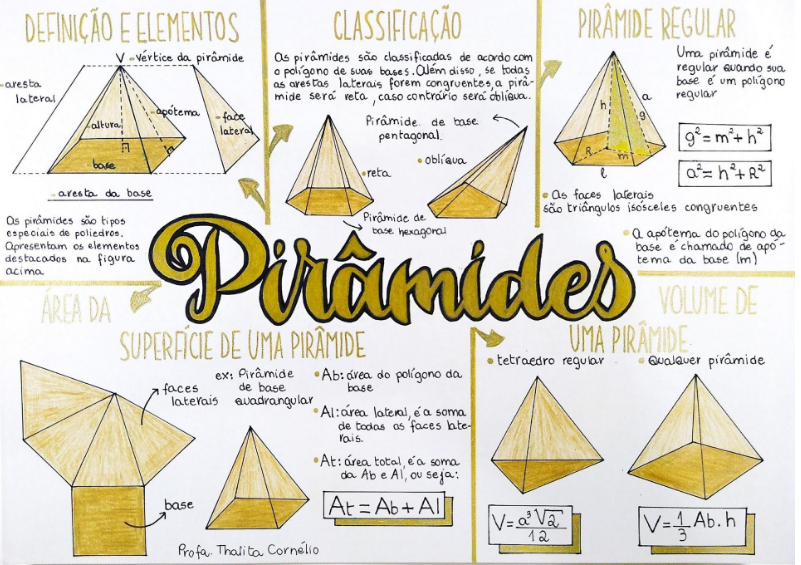 DEFINIÇÃO E ELEMENTOS
V → vértice da pirâmide
aresta
lateral
altura
apótema
face
lateral
base
aresta da base
As pirâmides são tipos
especiais de poliedros.
Apresentam os elementos
destacados na figura
acima.
CLASSIFICAÇÃO
As pirâmides são classificadas de acordo com
o polígono de suas bases. Além disso, se todas
as arestas laterais forem congruentes, a pirâ-
mide será reta, caso contrário será oblíqua.
Pirâmide de base
pentagonal.
reta
oblíqua
Pirâmide de
base hexagonal
PIRÂMIDE REGULAR
Uma pirâmide é
regular quando sua
base é um polígono
regular
h
a
g
R
m
l
g² = m² + h²
a² = h² + R²
As faces laterais
são triângulos isósceles congruentes
A apótema do polígono da
base é chamado de apó-
tema da base (m)
Pirâmides
ÁREA DA
SUPERFÍCIE DE UMA PIRÂMIDE
faces
laterais
base
ex: Pirâmide
de base
quadrangular
Ab: área do polígono da
base
Al: área lateral, é a soma
de todas as faces late-
rais.
At: área total, é a soma
da Ab e Al, ou seja:
At = Ab + Al
Profa. Thalita Cornélio
VOLUME DE
UMA PIRÂMIDE
tetraedro regular
Qualquer pirâmide
V = a³√2
12
V = 1/3 Ab.h